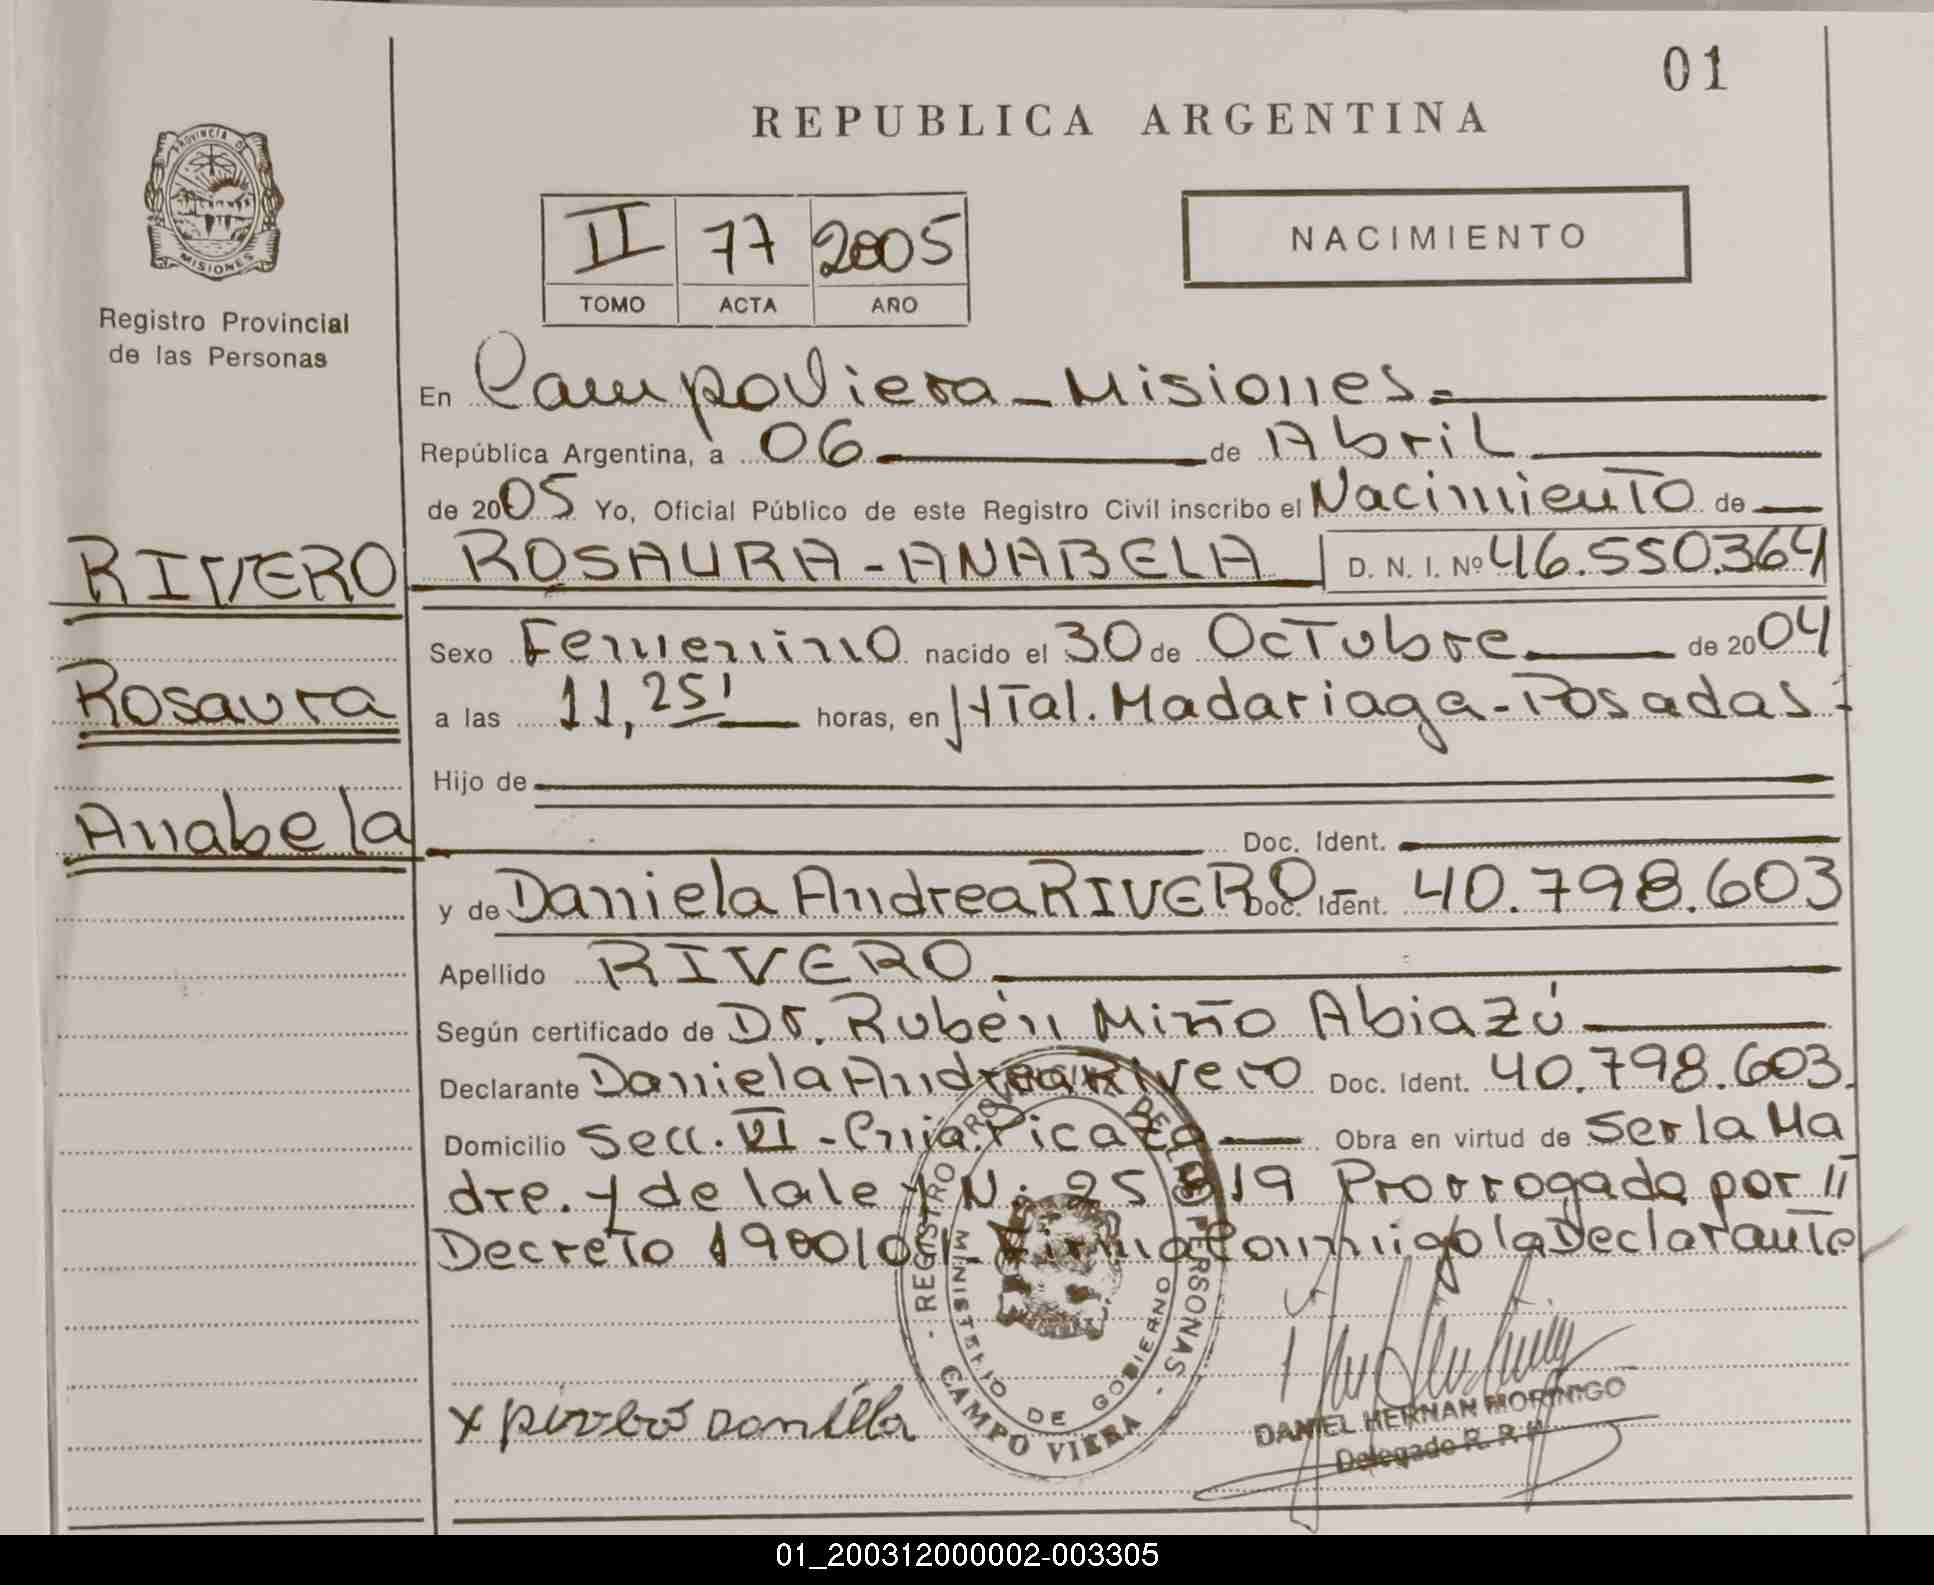 01
REPUBLICA ARGENTINA
PROVINCIA DE
MISIONES
Registro Provincial
de las Personas
II 77 2005
TOMO ACTA AÑO
NACIMIENTO
En Campo Viera - Misiones.
República Argentina, a 06 de Abril
de 2005 Yo, Oficial Público de este Registro Civil inscribo el Nacimiento de
RIVERO
Rosaura
Anabela
ROSAURA - ANABELA D. N. I. Nº 46.550.364
Sexo Femenino nacido el 30 de Octubre de 2004
a las 11,25' horas, en HTal. Madariaga - Posadas -
Hijo de
Doc. Ident.
y de Daniela Andrea RIVERO Doc. Ident. 40.798.603
Apellido RIVERO
Según certificado de Dr. Rubén Miño Abiazú
Declarante Daniela Andrea Rivero Doc. Ident. 40.798.603.
Domicilio Secc. VI - Cnia. Picaza Obra en virtud de Ser la Ma
dre. y de la ley N: 25 819 Prorrogada por
Decreto Firma Conmigo la Declarante
REGISTRO PROVINCIAL DE LAS PERSONAS
MINISTERIO DE GOBIERNO
CAMPO VIERA
DANIEL HERNAN MORINIGO
Delegado R. P. P.
01_200312000002-003305